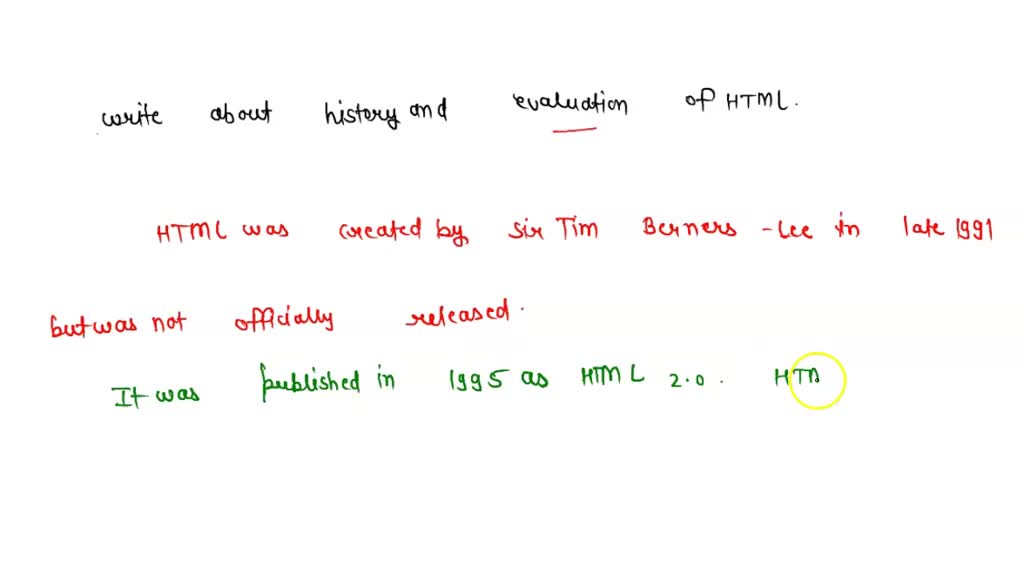 write about history and evaluation of HTML.
HTML was created by sir Tim Berners-Lee in late 1991
but was not officially released.
It was published in 1995 as HTML 2.0. HT